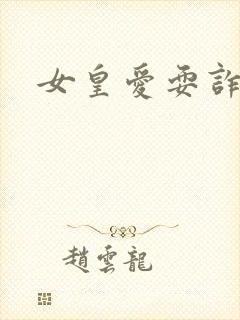 女皇愛耍詐
趙雲龍